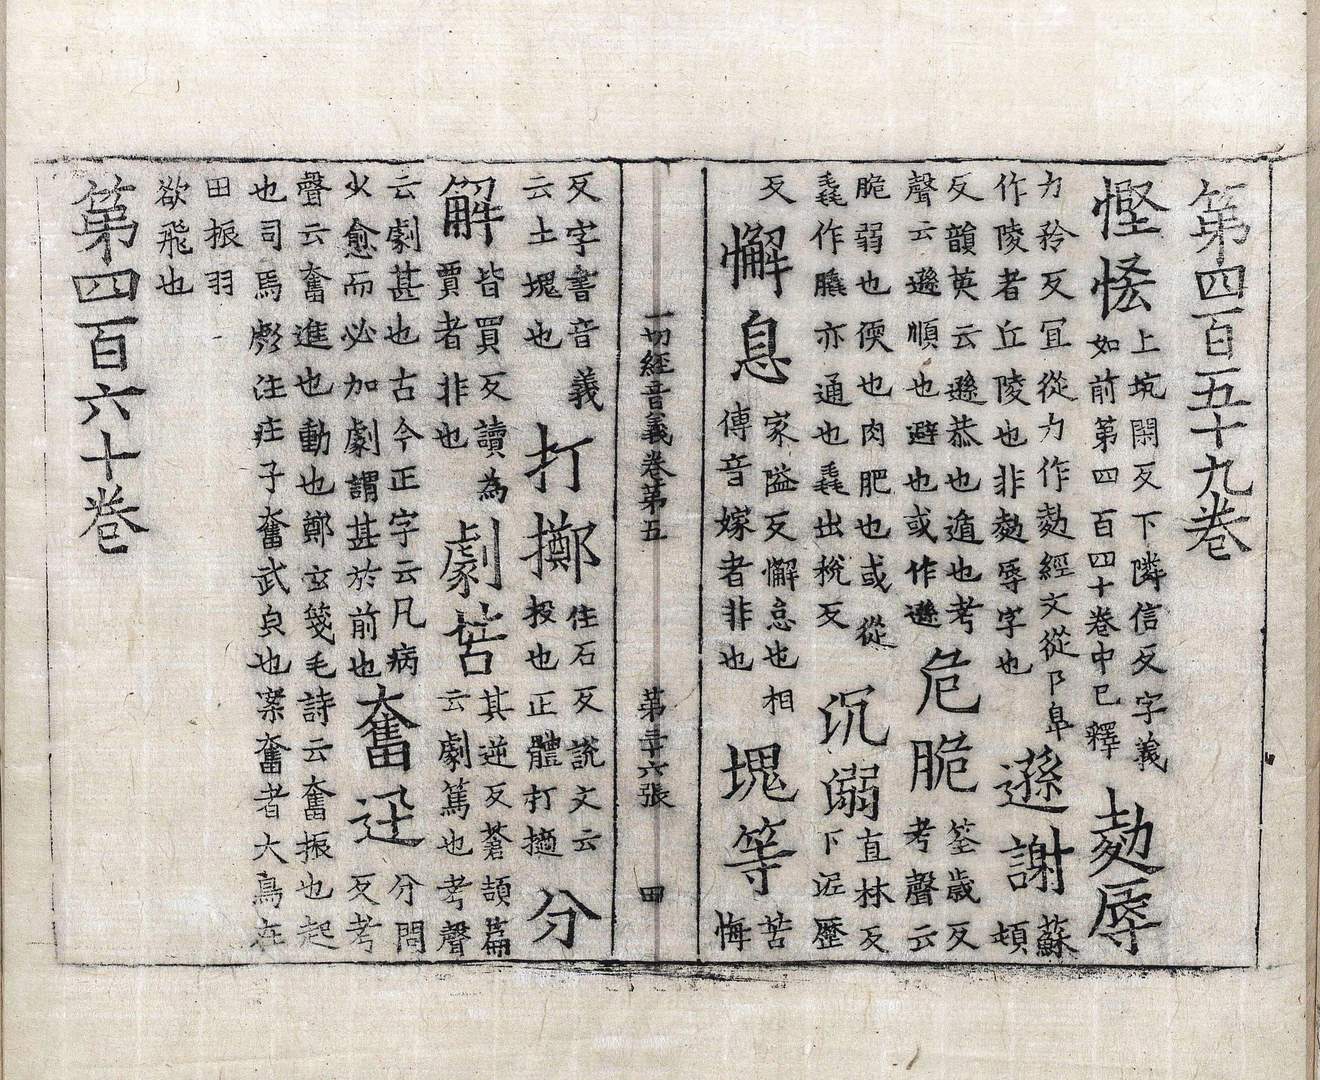 第四百五十九卷
慳悋上坑閑反下隣信反字義如前第四百四十卷中已釋勀辱
力矜反冝從力作勀經文從阝阜作陵者丘陵也非勀辱字也遜謝蘇頓
反韻英云遜恭也遁也考聲云遜順也避也或作遜危脆筌歲反考聲云
脆弱也偄也肉肥也或從毳作膬亦通也毳出稅反沉溺直林反下泥歷
反懈息家隘反懈怠也相傳音嫁者非也塊等苦悔
一切經音義卷第五 第三十六張 田
反字書音義云土塊也打擲住石反說文云投也正體打擿分
解皆買反讀為賈者非也劇苦其逆反蒼頡篇云劇篤也考聲
云劇甚也古今正字云凡病火愈而必加劇謂甚於前也奮迅分問反考
聲云奮進也動也鄭玄箋毛詩云奮振也起也司馬彪注庄子奮武皃也案奮者大鳥在
田振羽欲飛也
第四百六十卷